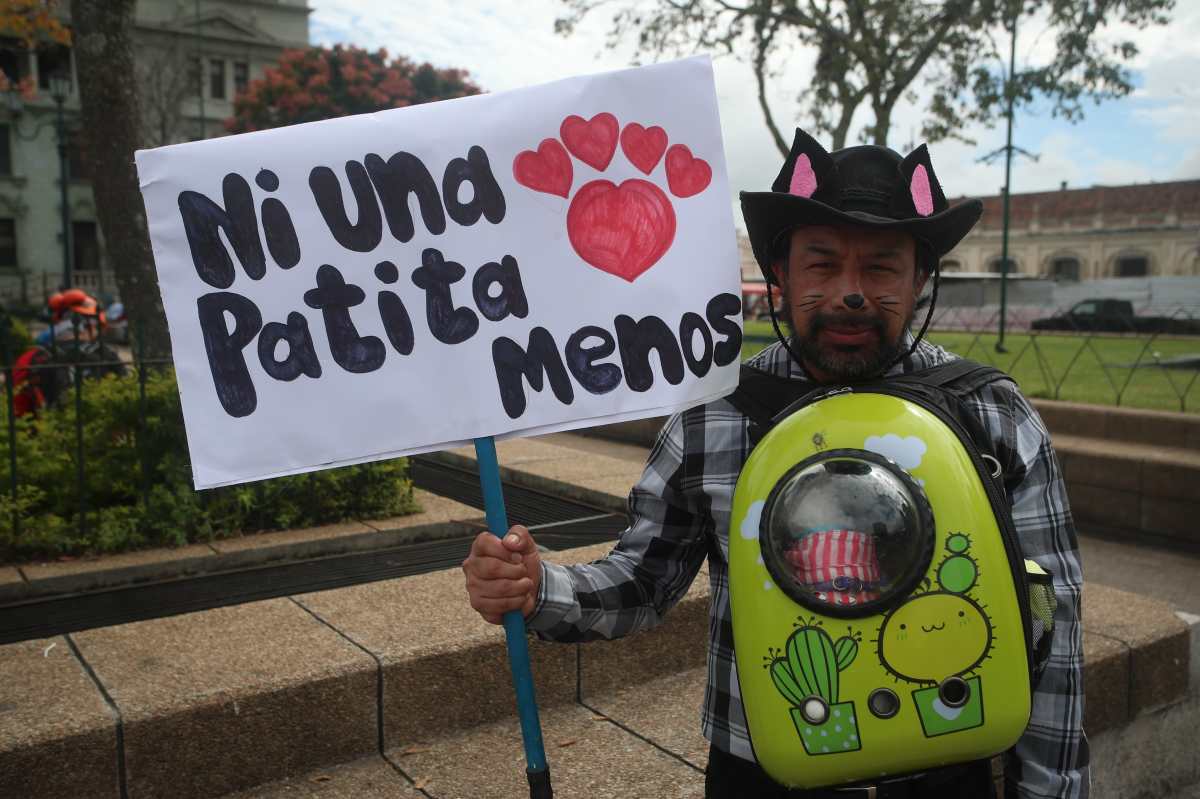 Ni Una
Patita
Menos